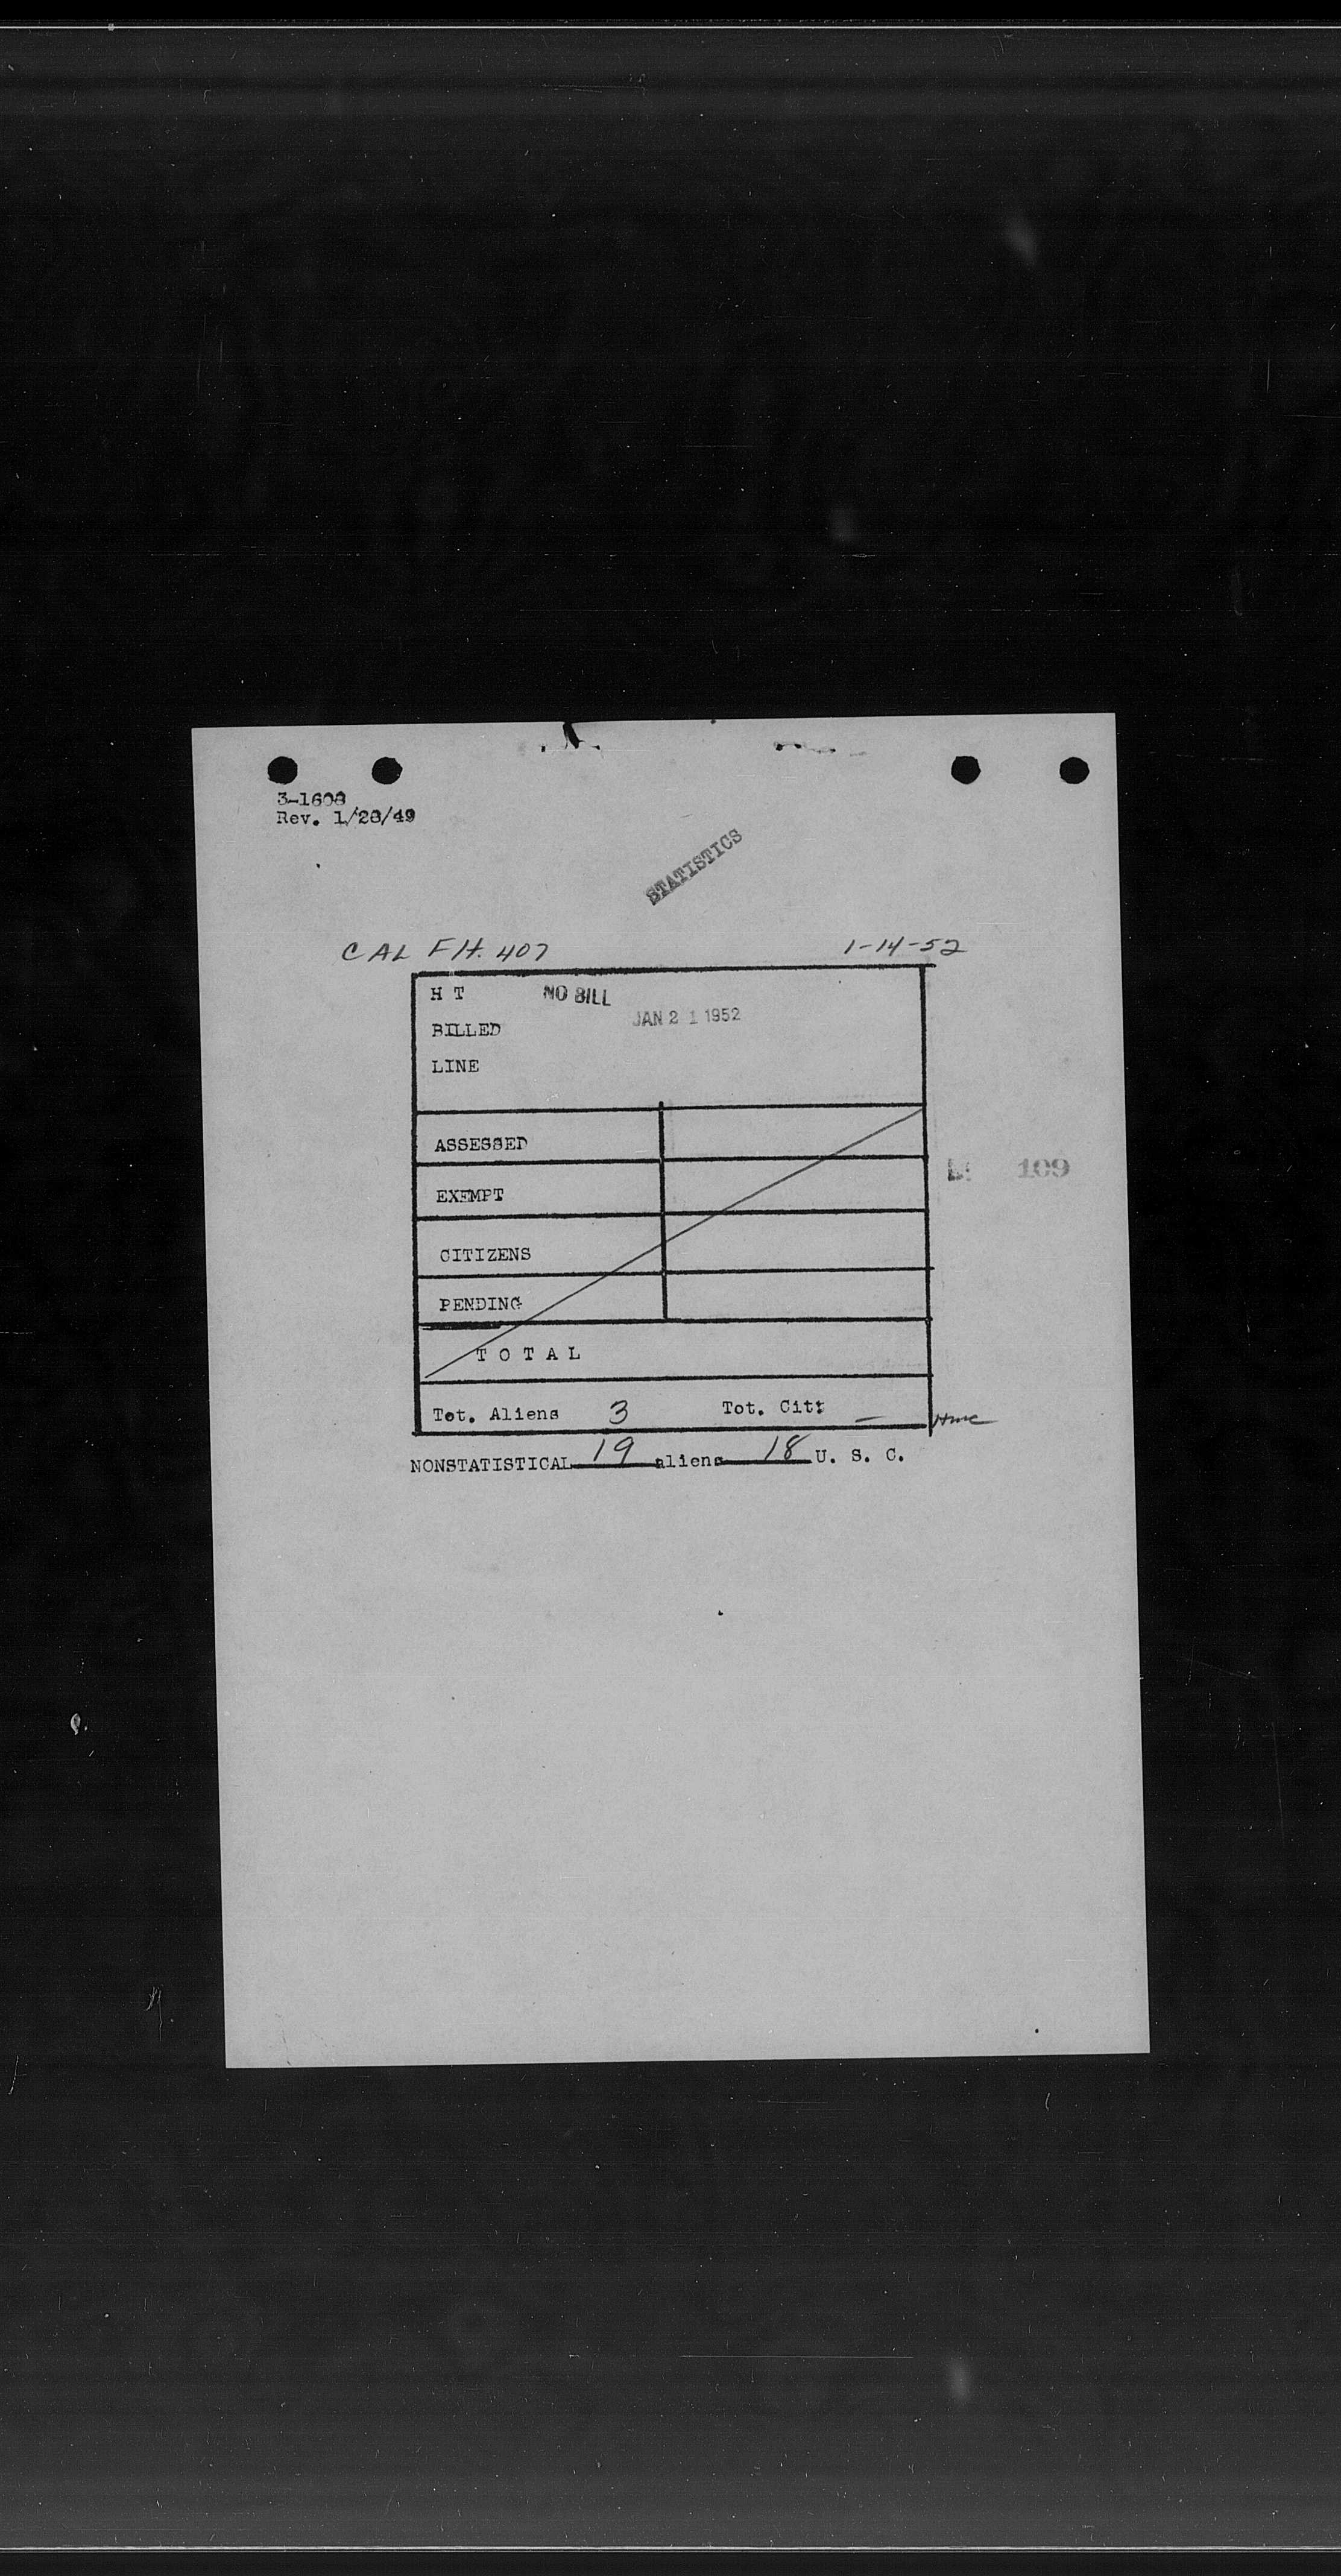 3-1608
Rev. 1/28/49
STATISTICS
CAL FH. 407 1-14-52
H T NO BILL
BILLED JAN 21 1952
LINE
ASSESSED
109
EXEMPT
CITIZENS
PENDING
T O T A L
Tot. Aliens 3 Tot. Citi —
NONSTATISTICAL 19 aliens 18 U. S. C.